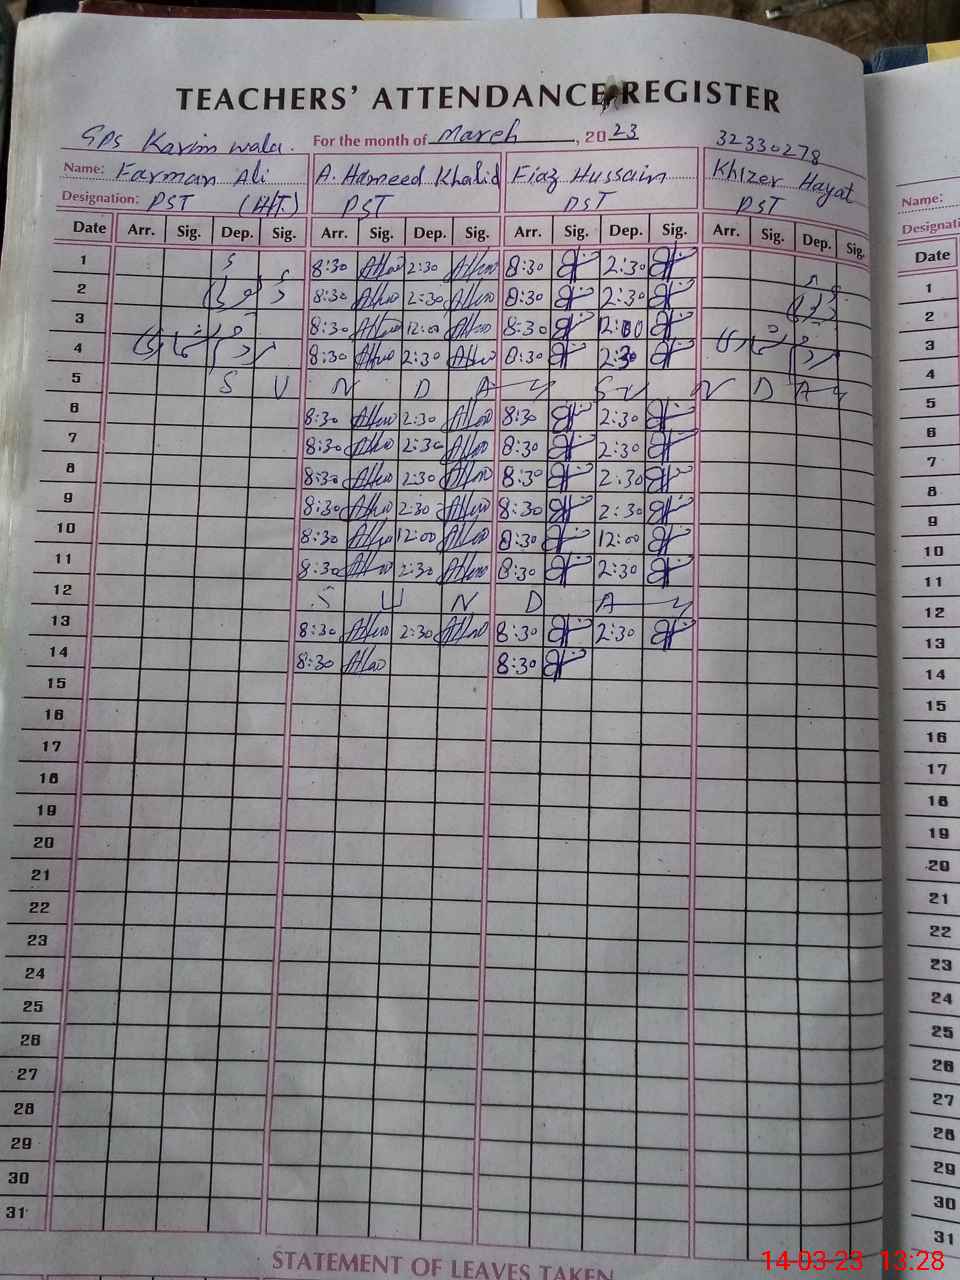 TEACHERS' ATTENDANCE REGISTER
GPS Karim wala. For the month of March, 2023 32330278
Name: Farman Ali A. Hameed Khalid Fiaz Hussain Khizer Hayat
Designation: PST (H/T.) PST PST PST
Date Arr. Sig. Dep. Sig. Arr. Sig. Dep. Sig. Arr. Sig. Dep. Sig. Arr. Sig. Dep. Sig.
1 8:30 2:30 8:30 2:30
2 8:30 2:30 8:30 2:30
3 8:30 12:00 8:30 12:00
4 8:30 2:30 8:30 2:30
5 S U N D A Y S U N D A Y
6 8:30 2:30 8:30 2:30
7 8:30 2:30 8:30 2:30
8 8:30 2:30 8:30 2:30
9 8:30 2:30 8:30 2:30
10 8:30 12:00 8:30 12:00
11 8:30 2:30 8:30 2:30
12 S U N D A Y
13 8:30 2:30 8:30 2:30
14 8:30 8:30
15
16
17
18
19
20
21
22
23
24
25
26
27
28
29
30
31
STATEMENT OF LEAVES TAKEN
Name:
Date
1
2
3
4
5
6
7
8
9
10
11
12
13
14
15
16
17
18
19
20
21
22
23
24
25
26
27
28
29
30
31
14-03-23 13:28